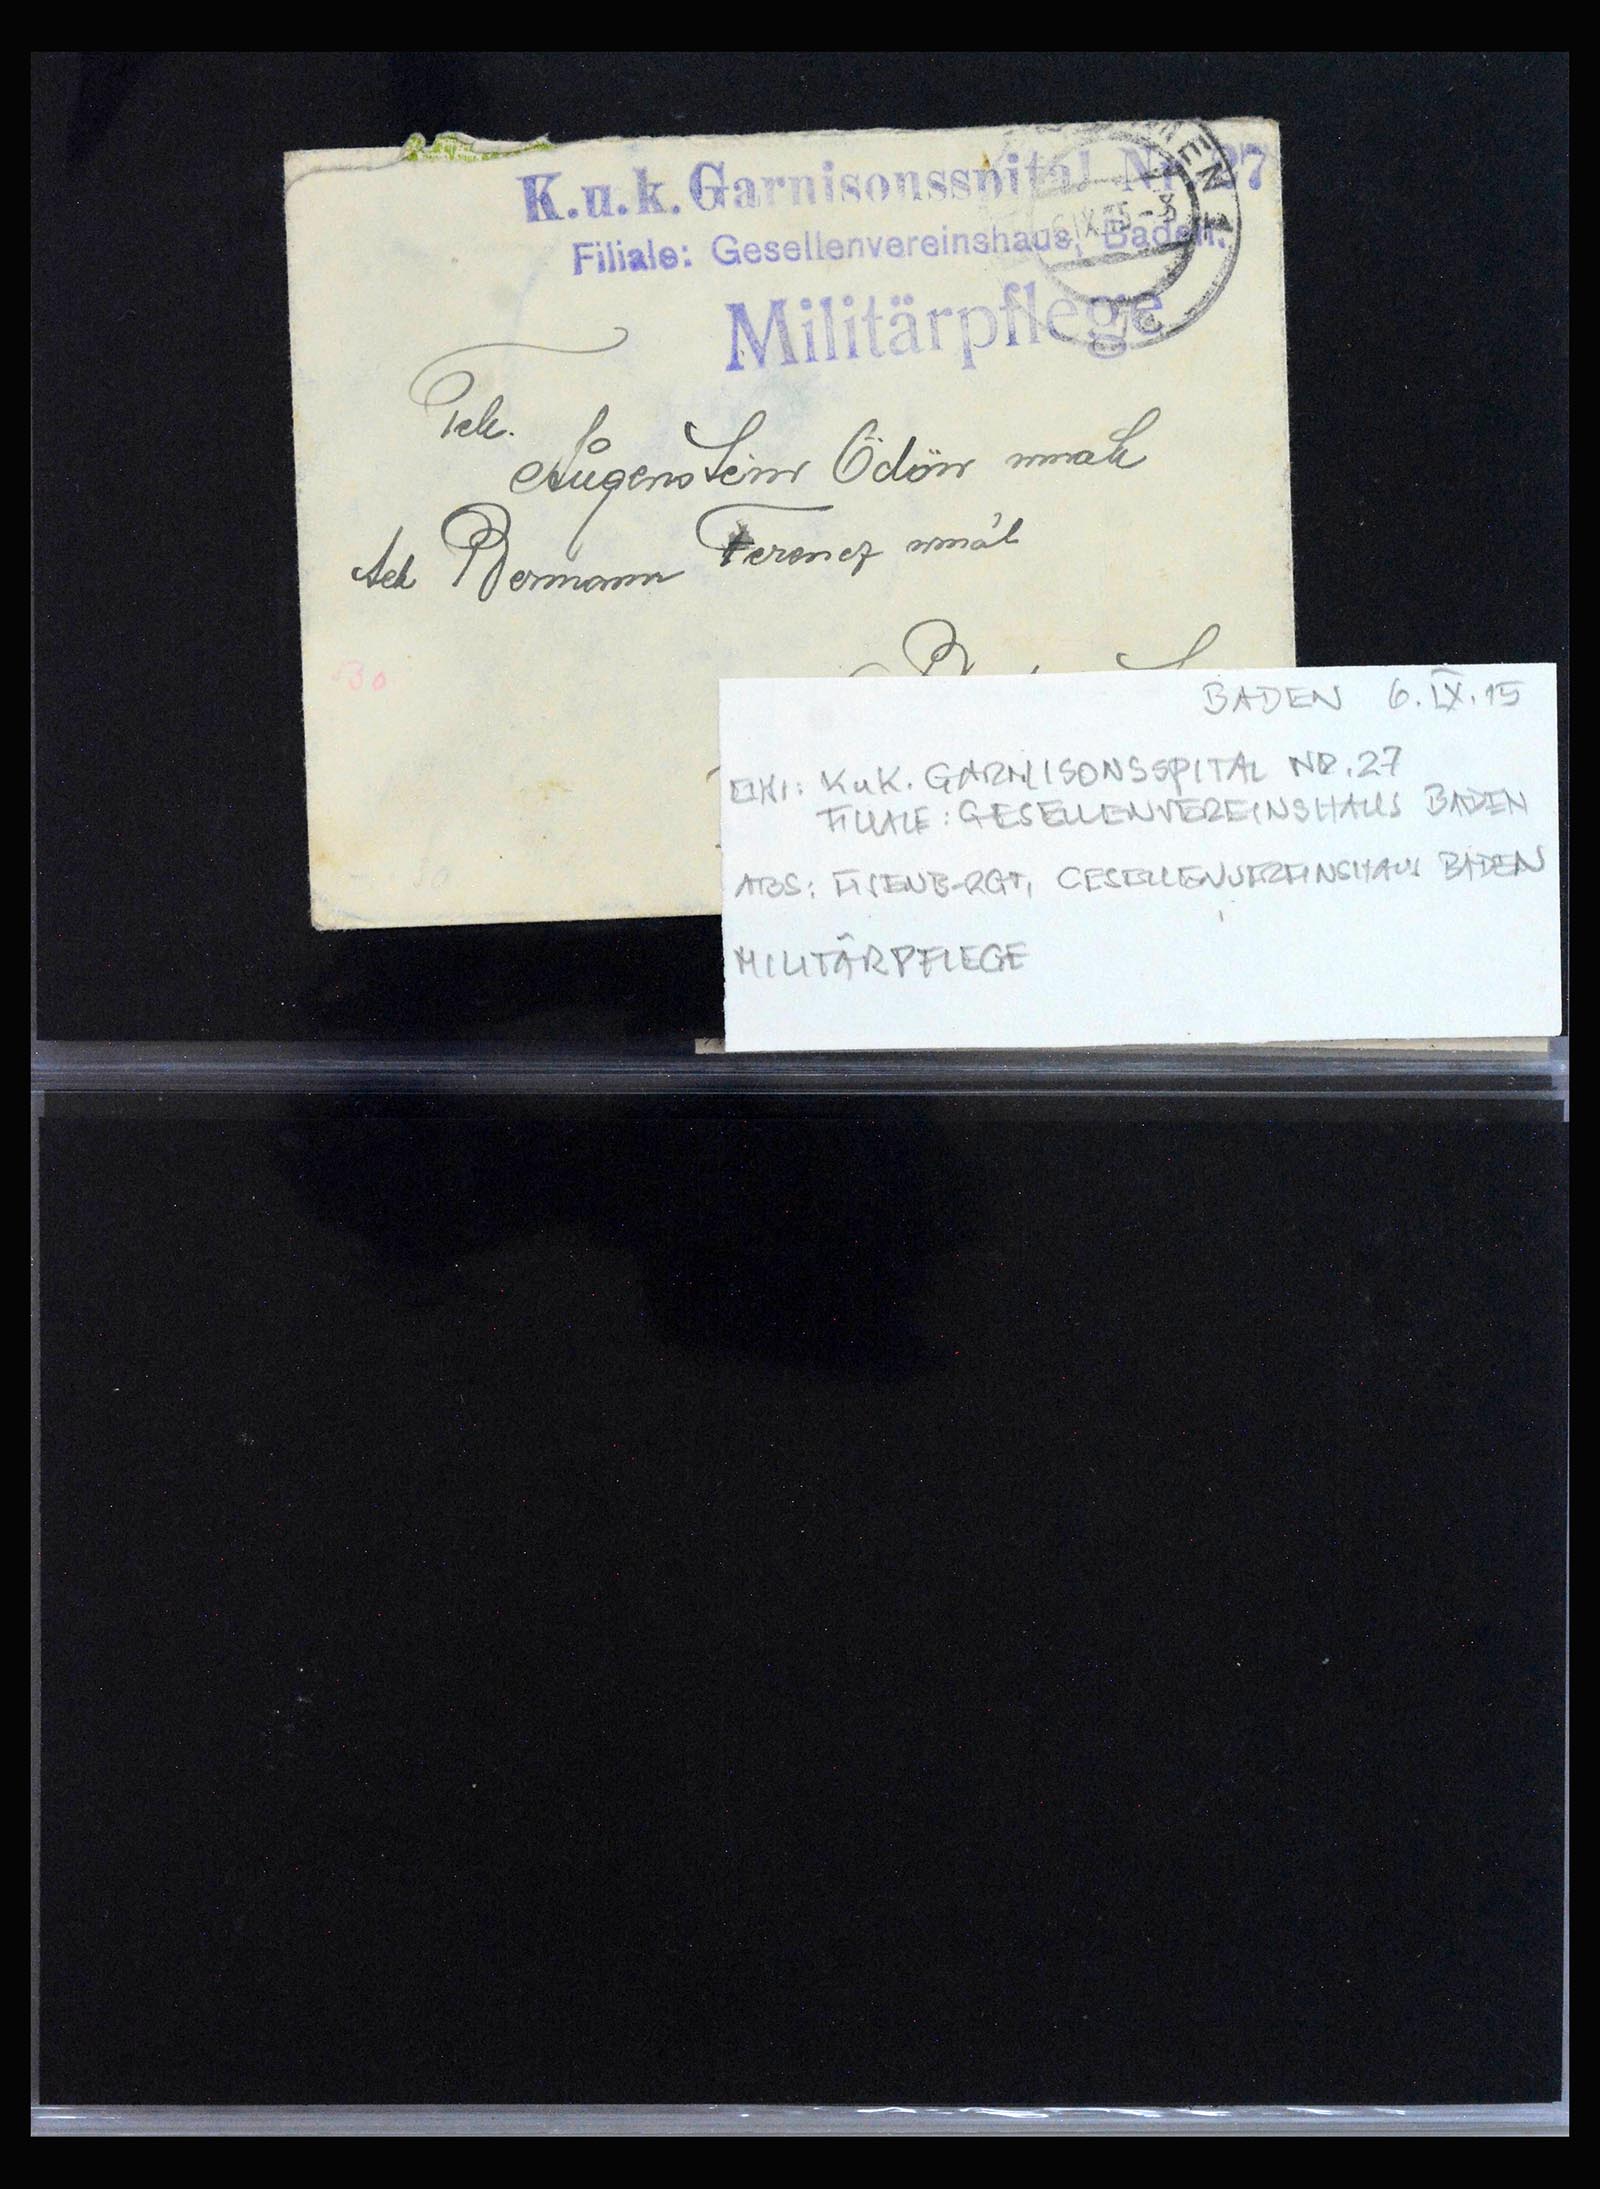 K.u.k. Garnisonsspital Nr. 27
Filiale: Gesellenvereinshaus, Baden.
Militärpflege
6 IX 15 - 3
Tek.
Augenstein Ödön urnak
Bermann Ferencz urnál
30
BADEN 6. IX. 15
KuK. GARNISONSSPITAL NR. 27
FILIALE: GESELLENVEREINSHAUS BADEN
ABS: EISENB-RGT, GESELLENVEREINSHAUS BADEN
MILITÄRPFLEGE